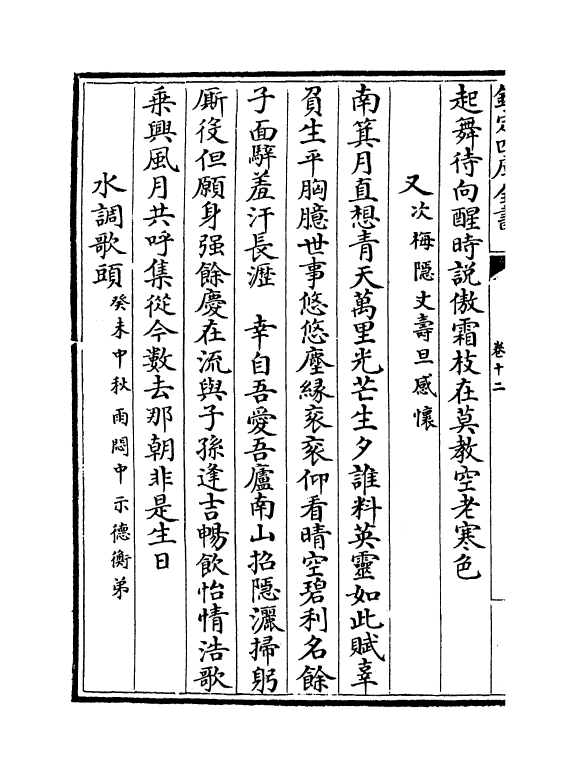 欽定四庫全書
卷十二
起舞待向醒時説傲霜枝在莫教空老寒色
又次梅隱丈壽旦感懷
南箕月直想青天萬里光芒生夕誰料英靈如此賦辜
負生平胸臆世事悠悠塵緣衮衮仰看晴空碧利名餘
子面騂羞汗長瀝　幸自吾愛吾廬南山招隱灑掃躬
厮役但願身强餘慶在流與子孫逢吉暢飲怡情浩歌
乗興風月共呼集從今數去那朝非是生日
水調歌頭癸未中秋雨悶中示德衡弟